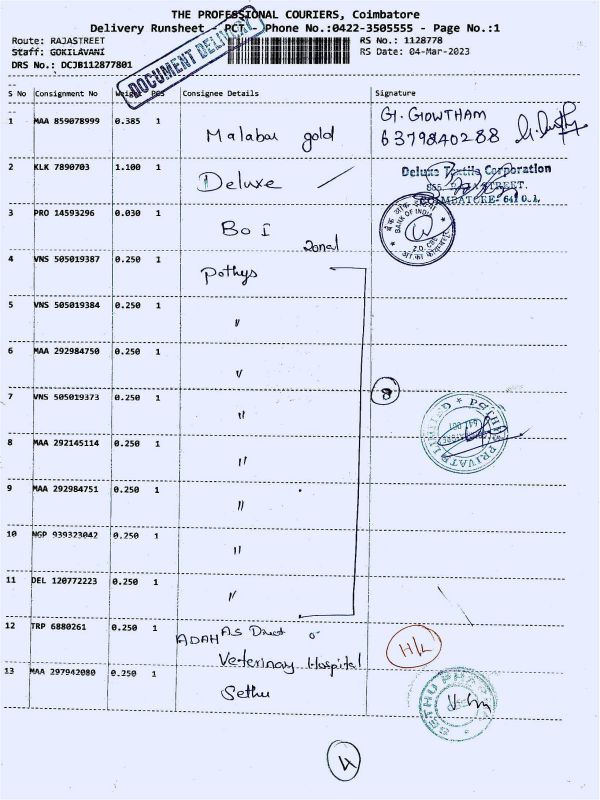 THE PROFESSIONAL COURIERS, Coimbatore
Delivery Runsheet - PCT - Phone No.:0422-3505555 - Page No.:1
Route: RAJASTREET
RS No.: 1128778
Staff: GOKILAVANI
RS Date: 04-Mar-2023
DRS No.: DCJB112877801
DOCUMENT DELIVERY
S No Consignment No Weight PCS Consignee Details Signature
1 MAA 859078999 0.385 1 Malabar gold G. GOWTHAM
6379840288
2 KLK 7890703 1.100 1 Deluxe
Deluxe Textile Corporation
COIMBATORE- 641 001.
3 PRO 14593296 0.030 1 BOI
Zonal
BANK OF INDIA
4 VNS 505019387 0.250 1 Pothys
5 VNS 505019384 0.250 1 "
6 MAA 292984750 0.250 1 "
7 VNS 505019373 0.250 1 "
8
8 MAA 292145114 0.250 1 "
PRIVATE LIMITED
9 MAA 292984751 0.250 1 "
10 NGP 939323042 0.250 1 "
11 DEL 120772223 0.250 1 "
12 TRP 6880261 0.250 1 ADAH
Veterinary Hospital
H/L
13 MAA 297942080 0.250 1 Sethu
SETHU